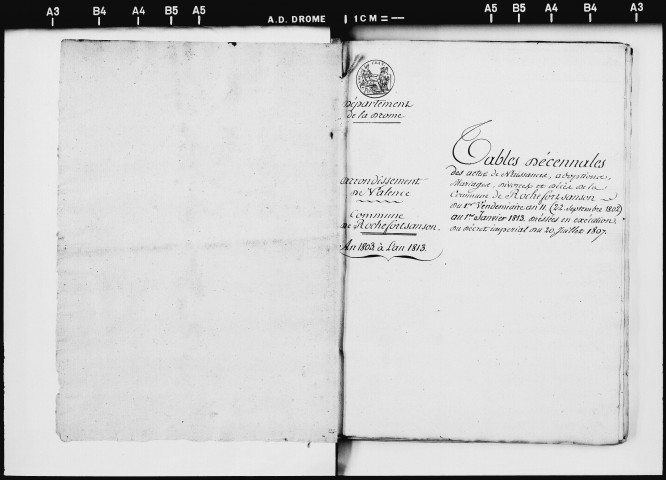 A3 B4 A4 B5 A5
A.D. DROME 1CM
A5 B5 A4 B4 A3
Département
de la Drome
arrondissement
de Valence
Commune
de Rochefortsanson.
An 1802 à l'an 1813.
Tables Décennales
des actes de Naissances, adoptions,
Mariages, divorces et décès de la
Commune de Rochefortsanson
du 1er Vendemiaire an 11. (22 Septembre 1802)
au 1er Janvier 1813. dréssées en exécution
du décret imperial du 20 Juillet 1807.